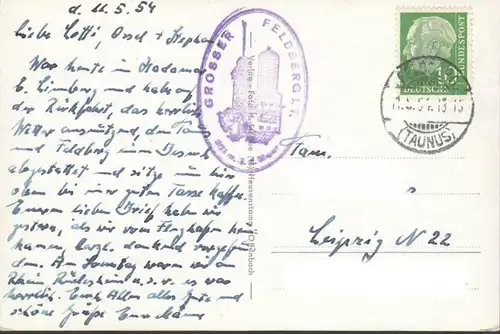 d. 11.5.54
Liebe Lotti, Ossel + Stephan
War heute in Hadamar
b. Limburg und habe auf
der Rückfahrt, das herrliche
Wetter ausnützend, dem Taunus
und Feldberg einen Besuch
abgestattet und sitze nun hier
oben bei einer guten Tasse Kaffee.
Euren lieben Brief habe wir
gestern, als wir vom Flughafen heim
kamen, dankend vorgefun
den. Am Sonntag waren wir am
Rhein Rüdesheim u.s.w. es war
herrlich. Euch Allen alles Gute und
schöne Grüße Eure
GROSSER FELDBERG I. T.
DEUTSCHE BUNDESPOST
10
(TAUNUS)
Fam.
Leipzig N 22